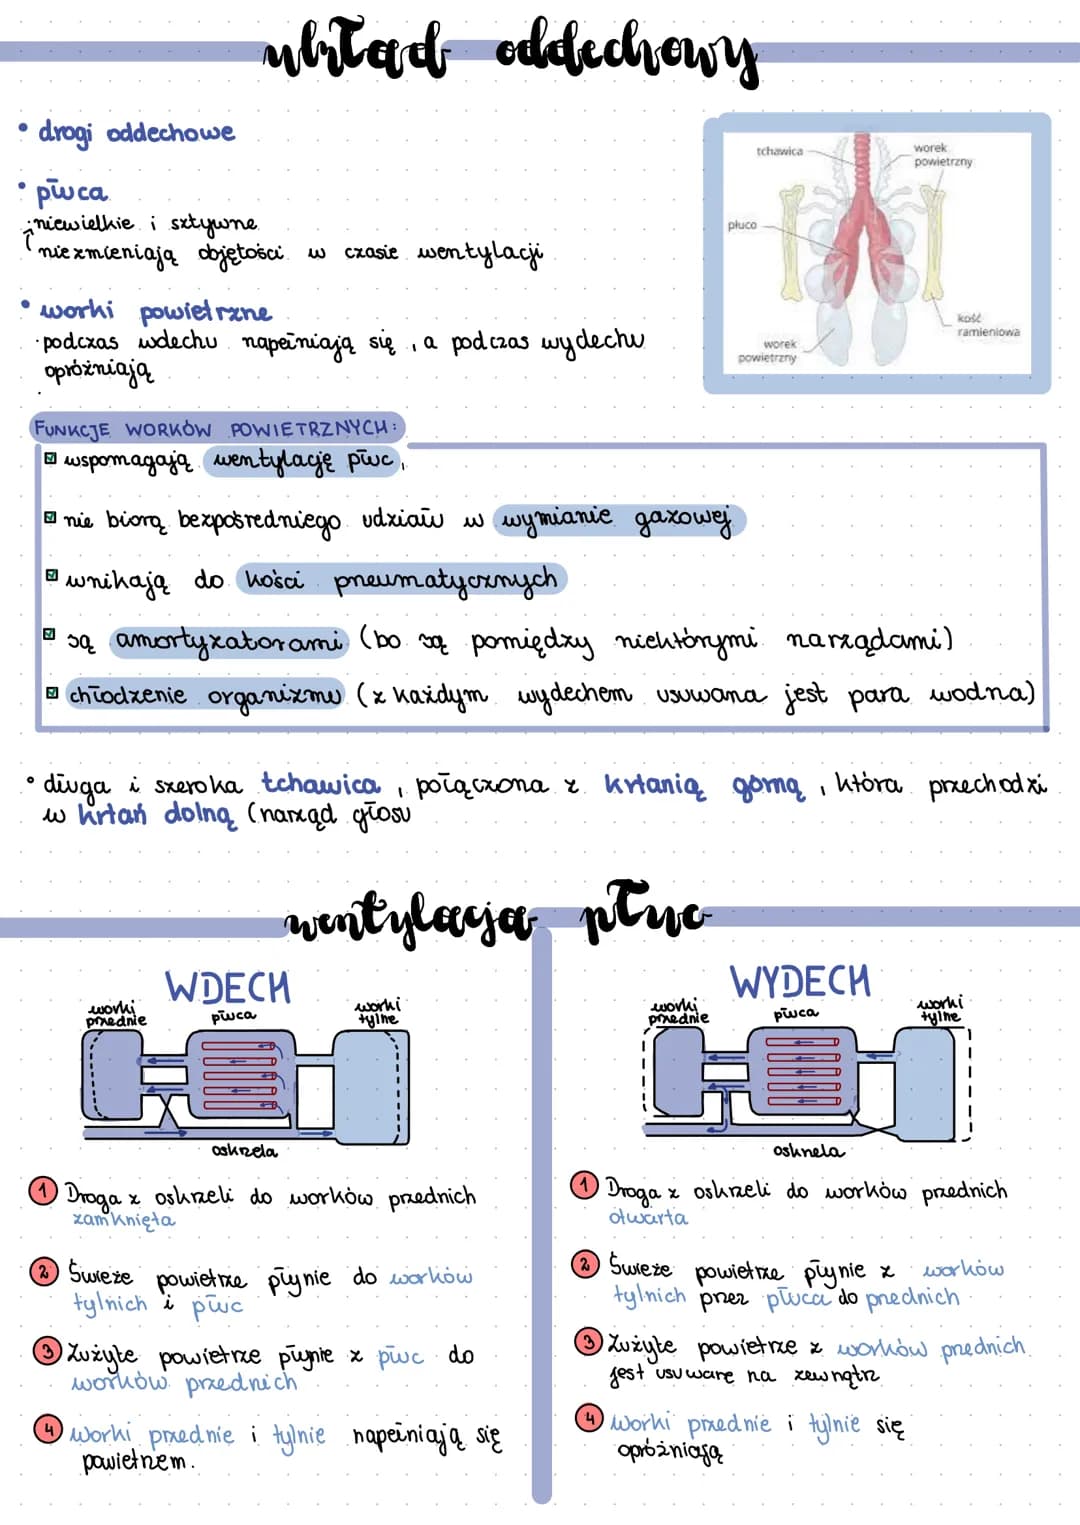 układ oddechowy
• drogi oddechowe
• płuca
· niewielkie i sztywne
nie zmieniają objętości w czasie wentylacji
• worki powietrzne
· podczas wdechu napełniają się, a podczas wydechu
opróżniają
tchawica
worek
powietrzny
płuco
kość
ramieniowa
worek
powietrzny
FUNKCJE WORKÓW POWIETRZNYCH:
wspomagają wentylację płuc,
nie biorą bezpośredniego udziału w wymianie gazowej
wnikają do kości pneumatycznych
są amortyzatorami (bo są pomiędzy niektórymi narządami)
chłodzenie organizmu (z każdym wydechem usuwana jest para wodna)
• długa i szeroka tchawica, połączona z krtanią górną, która przechodzi
w krtań dolną (narząd głosu
wentylacja płuc
WDECH
worki
przednie
płuca
worki
tylne
oskrzela
1 Droga z oskrzeli do worków przednich
zamknięta
2 Świeże powietrze płynie do worków
tylnich i płuc
3 Zużyte powietrze płynie z płuc do
worków przednich
4 worki przednie i tylnie napełniają się
powietrzem.
WYDECH
worki
przednie
płuca
worki
tylne
oskrzela
1 Droga z oskrzeli do worków przednich
otwarta
2 Świeże powietrze płynie z worków
tylnich przez płuca do przednich
3 Zużyte powietrze z worków przednich
jest usuware na zewnątrz
4 worki przednie i tylnie się
opróżniają